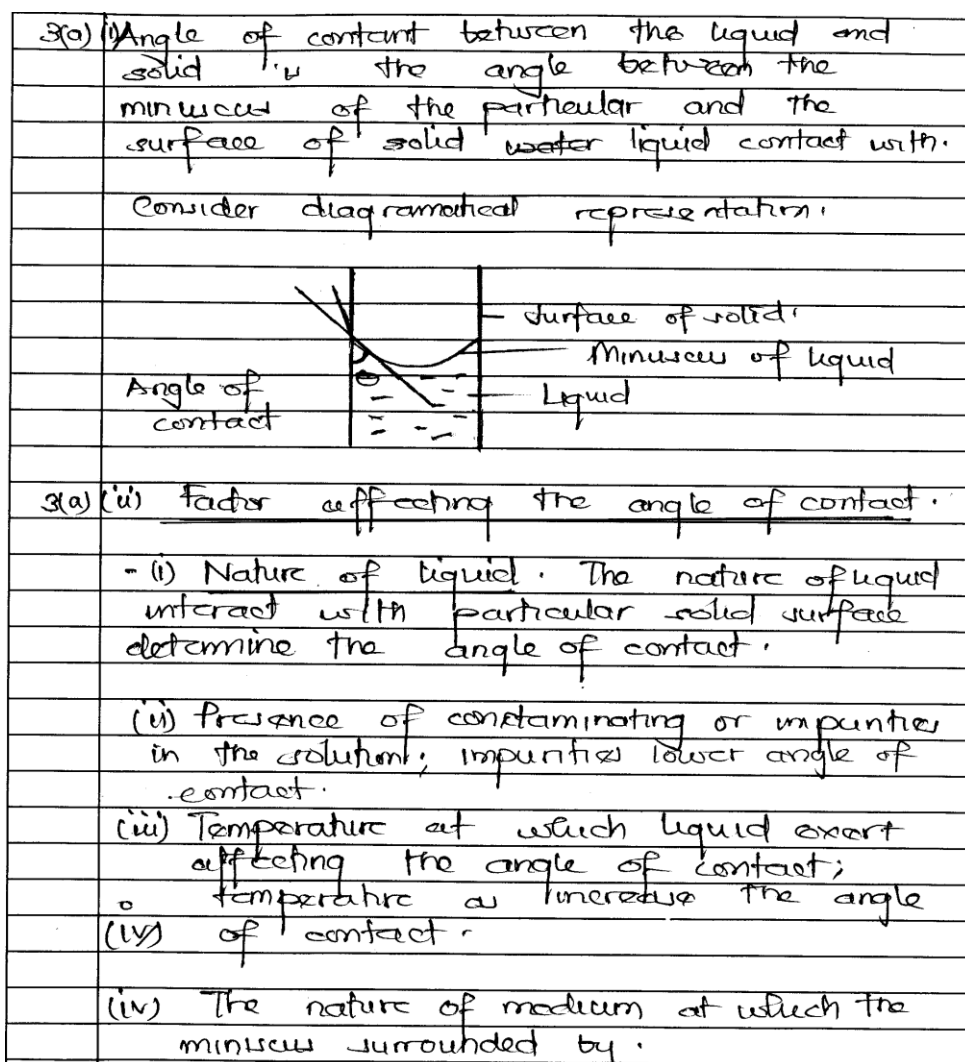 3(a) (i) Angle of contant between the liquid and
solid is the angle between the
minuscus of the particular and the
surface of solid water liquid contact with.
Consider diagramatical representation.
surface of solid.
Minuscus of liquid
Angle of
contact
Liquid
3(a) (ii) Factor affecting the angle of contact.
- (i) Nature of liquid. The nature of liquid
interact with particular solid surface
determine the angle of contact.
(ii) Presence of constaminating or impurities
in the solution; impurities lower angle of
contact.
(iii) Temperature at which liquid exert
affecting the angle of contact;
temperature as increase the angle
(iv) of contact.
(iv) The nature of medium at which the
miniscus surrounded by.